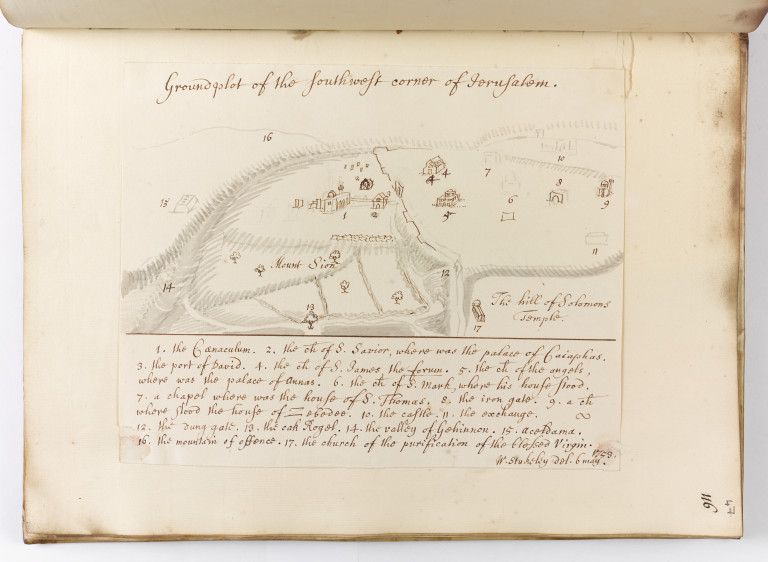 Groundplot of the southwest corner of Jerusalem.
16
10
4
4
7
8
6
9
15
1
2
5
11
Mount Sion
12
14
13
The hill of Solomons
Temple.
17
1. the Cœnaculum. 2. the ch of S. Savior, where was the palace of Caiaphas.
3. the port of David. 4. the ch of S. James the forum. 5. the ch of the angels,
where was the palace of annas. 6. the ch of S. Mark, where his house stood.
7. a chapel where was the house of S. Thomas. 8. the iron gate. 9. a ch
where stood the house of Zebedee. 10. the castle. 11. the exchange.
12. the dung gate. 13. the oak Rogel. 14. the valley of Gehinnon. 15. aceldama.
16. the mountain of offence. 17. the church of the purification of the blessed Virgin.
1723.
W. Stukeley del. 6 may.
116